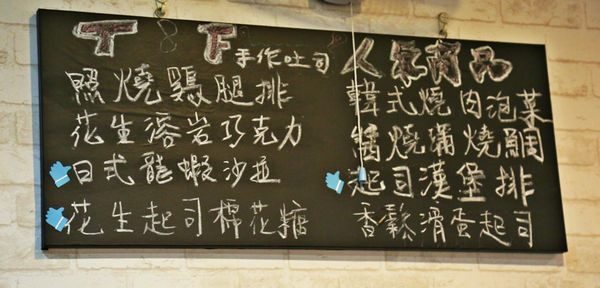 T & F 手作吐司
照燒鷄腿排
花生溶岩巧克力
日式龍蝦沙拉
花生起司棉花糖
人氣商品
韓式燒肉泡菜
醬燒瑞燒鯛
起司漢堡排
香鬆滑蛋起司